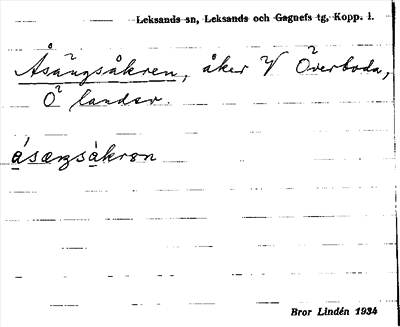 Leksands sn, Leksands och Gagnefs tg, Kopp. l.
Åsängsåkren, åker V Överboda,
Ö landsv.
åsæŋsåkrən
Bror Lindén 1934